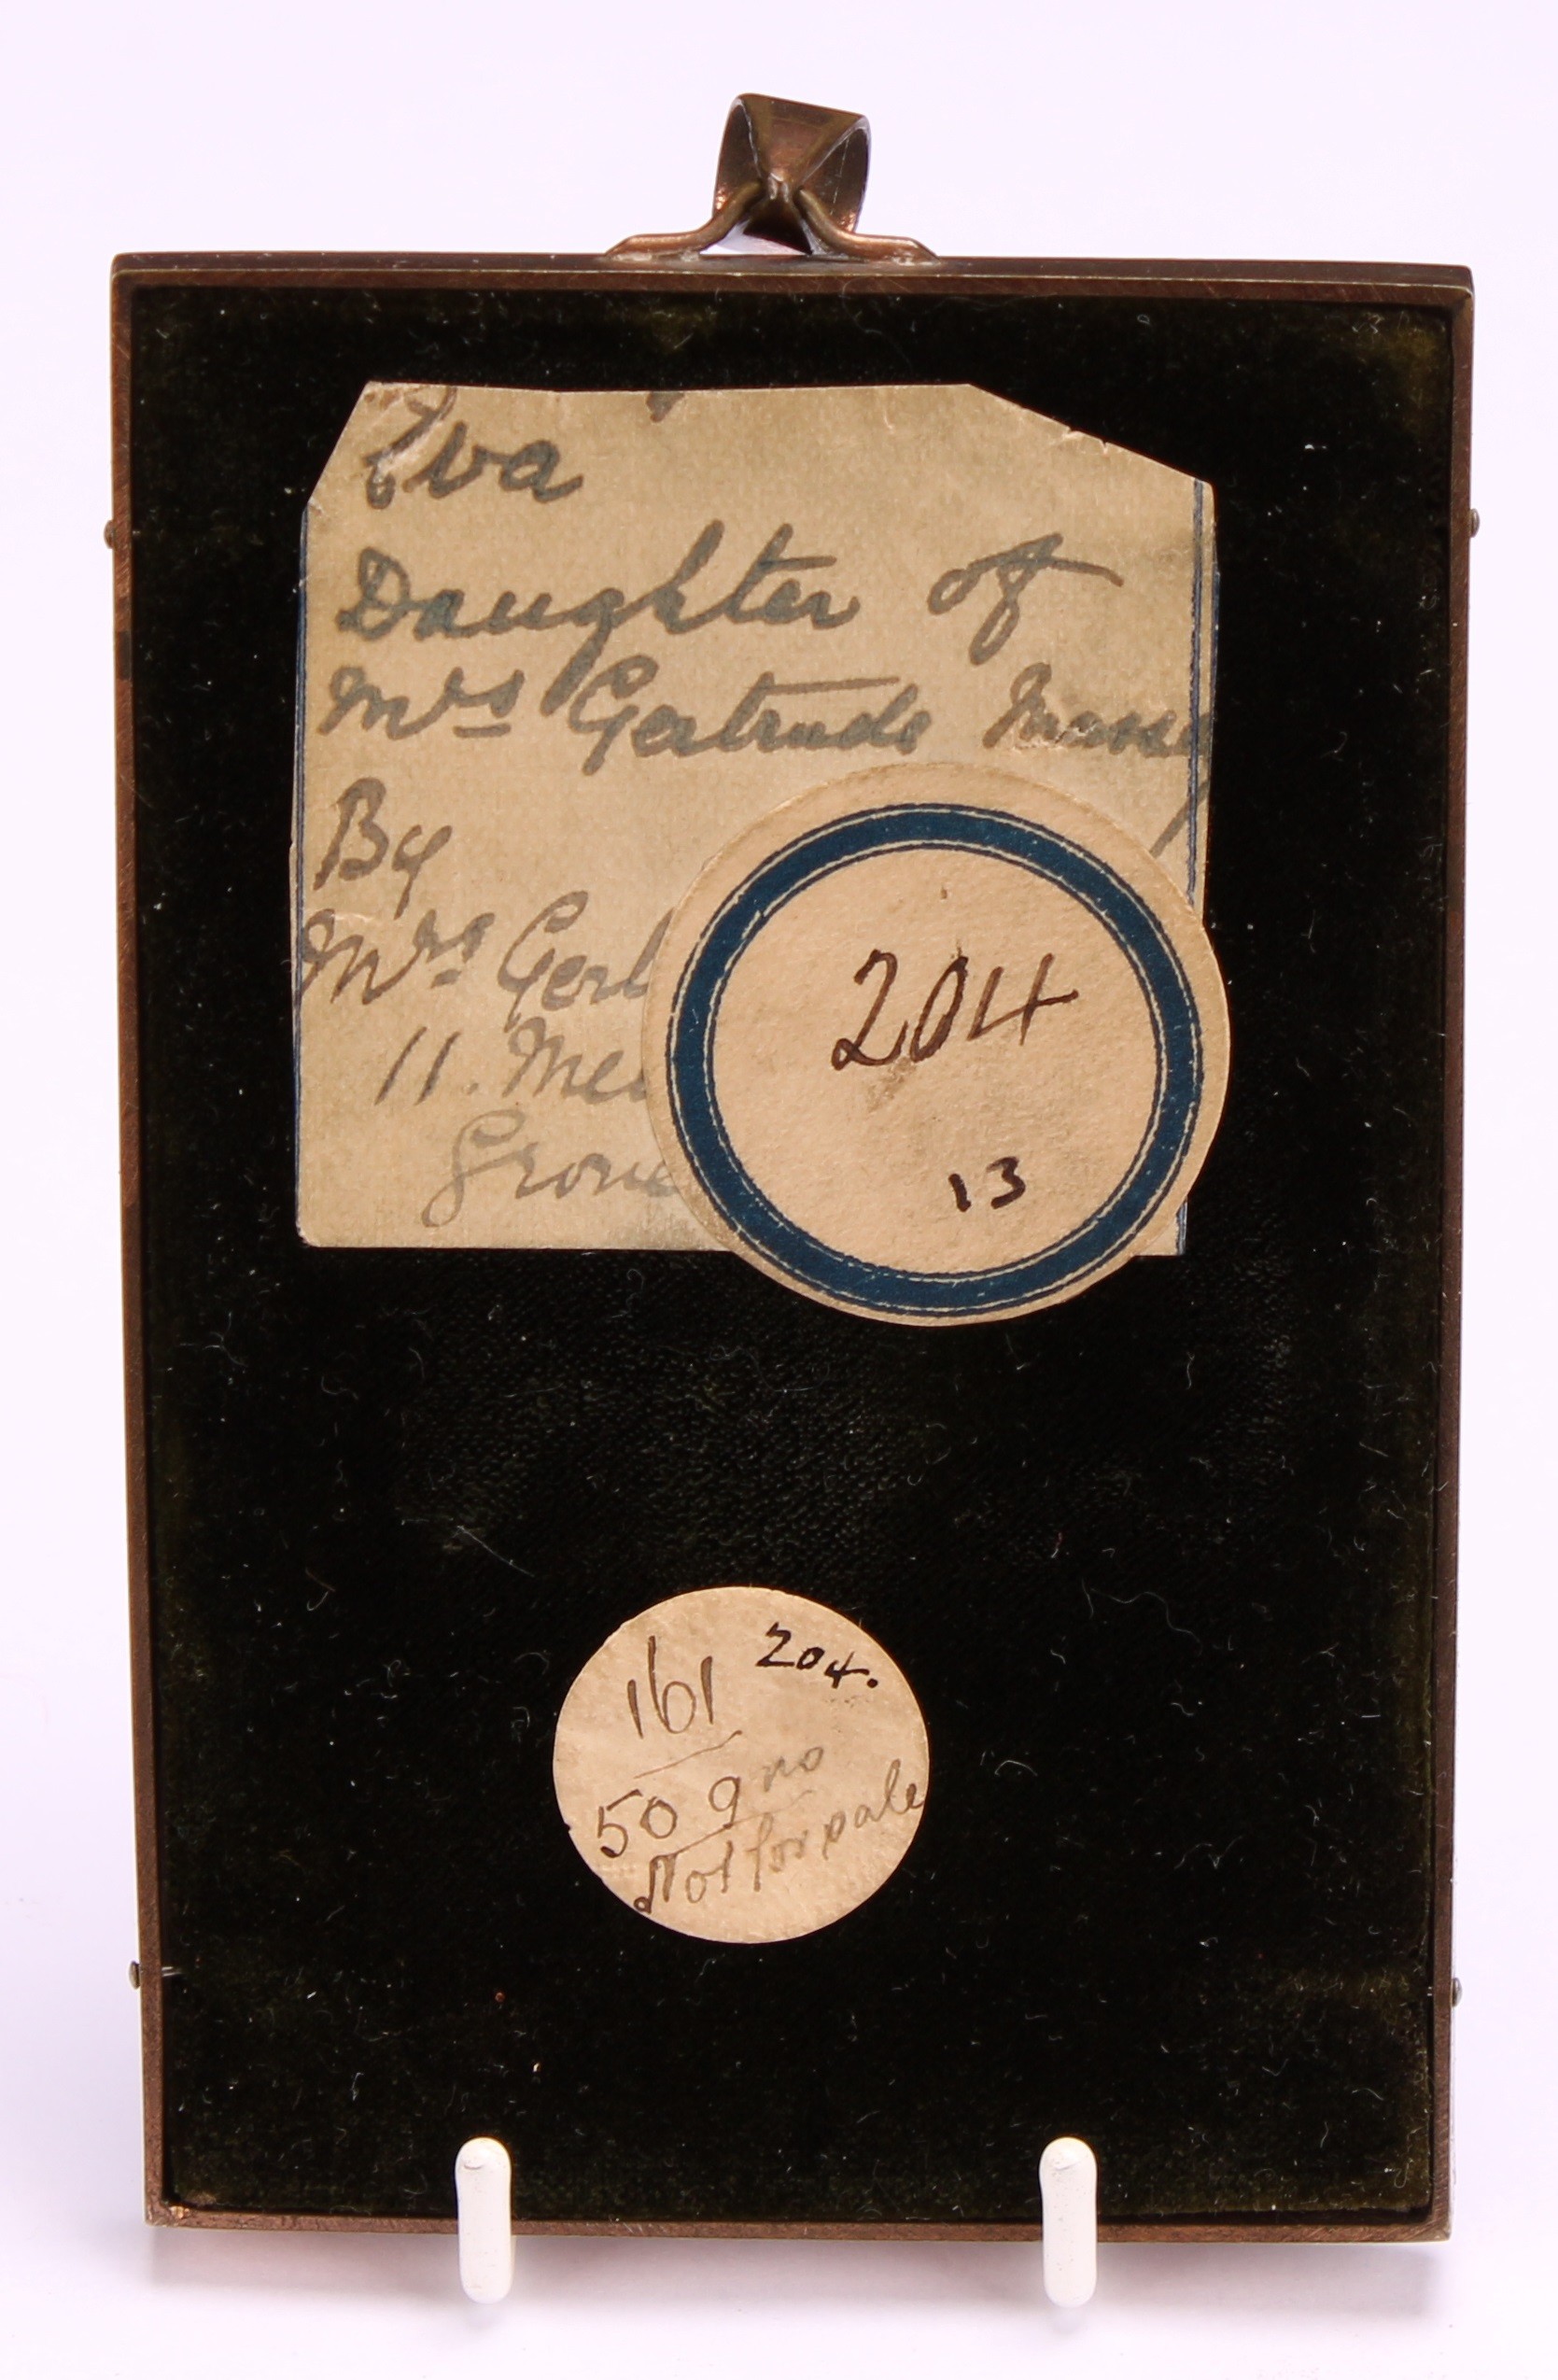 Eva
Daughter of
Mrs Gertrude Massey
By
Mrs Gert
11. Mel
Grove
204
13
161 204.
50 gns
Not for sale